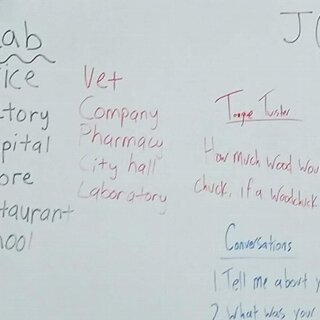 ab
ice
tory
pital
ore
taurant
ool
Vet
Company
Pharmacy
City hall
Laboratory
J
Tongue Twister
How much wood wou
chuck, if a woodchuck
Conversations
1. Tell me about y
2. What was your